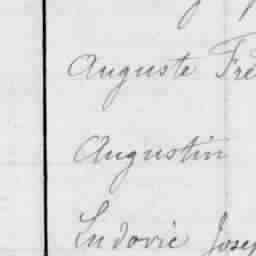 Auguste Fré
Augustin
Ludovic Josep